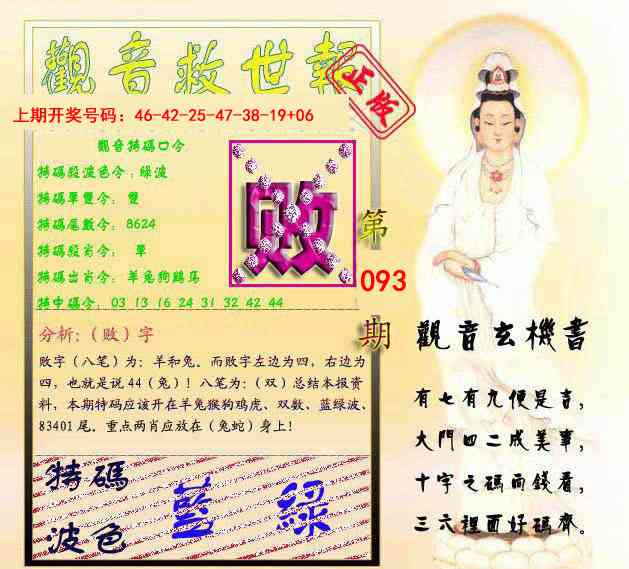 觀音救世報
正版
上期开奖号码：46-42-25-47-38-19+06
觀音特碼口令
特碼段波色令：綠波
特碼單雙令：雙
特碼尾數令：8624
特碼段肖令：單
特碼出肖令：羊兔狗鷄馬
特中碼令：03 13 16 24 31 32 42 44
败
第
093
期
分析:（败）字
败字（八笔）为：羊和兔。而败字左边为四，右边为
四，也就是说44（兔）！八笔为：（双）总结本报资
料，本期特码应该开在羊兔猴狗鸡虎、双数、蓝绿波、
83401尾。重点两肖应放在（兔蛇）身上！
特碼
波色
藍 綠
觀音玄機書
有七有九便是吉，
大門四二成美事，
十字之碼面錢看，
三六裡面好碼齊。